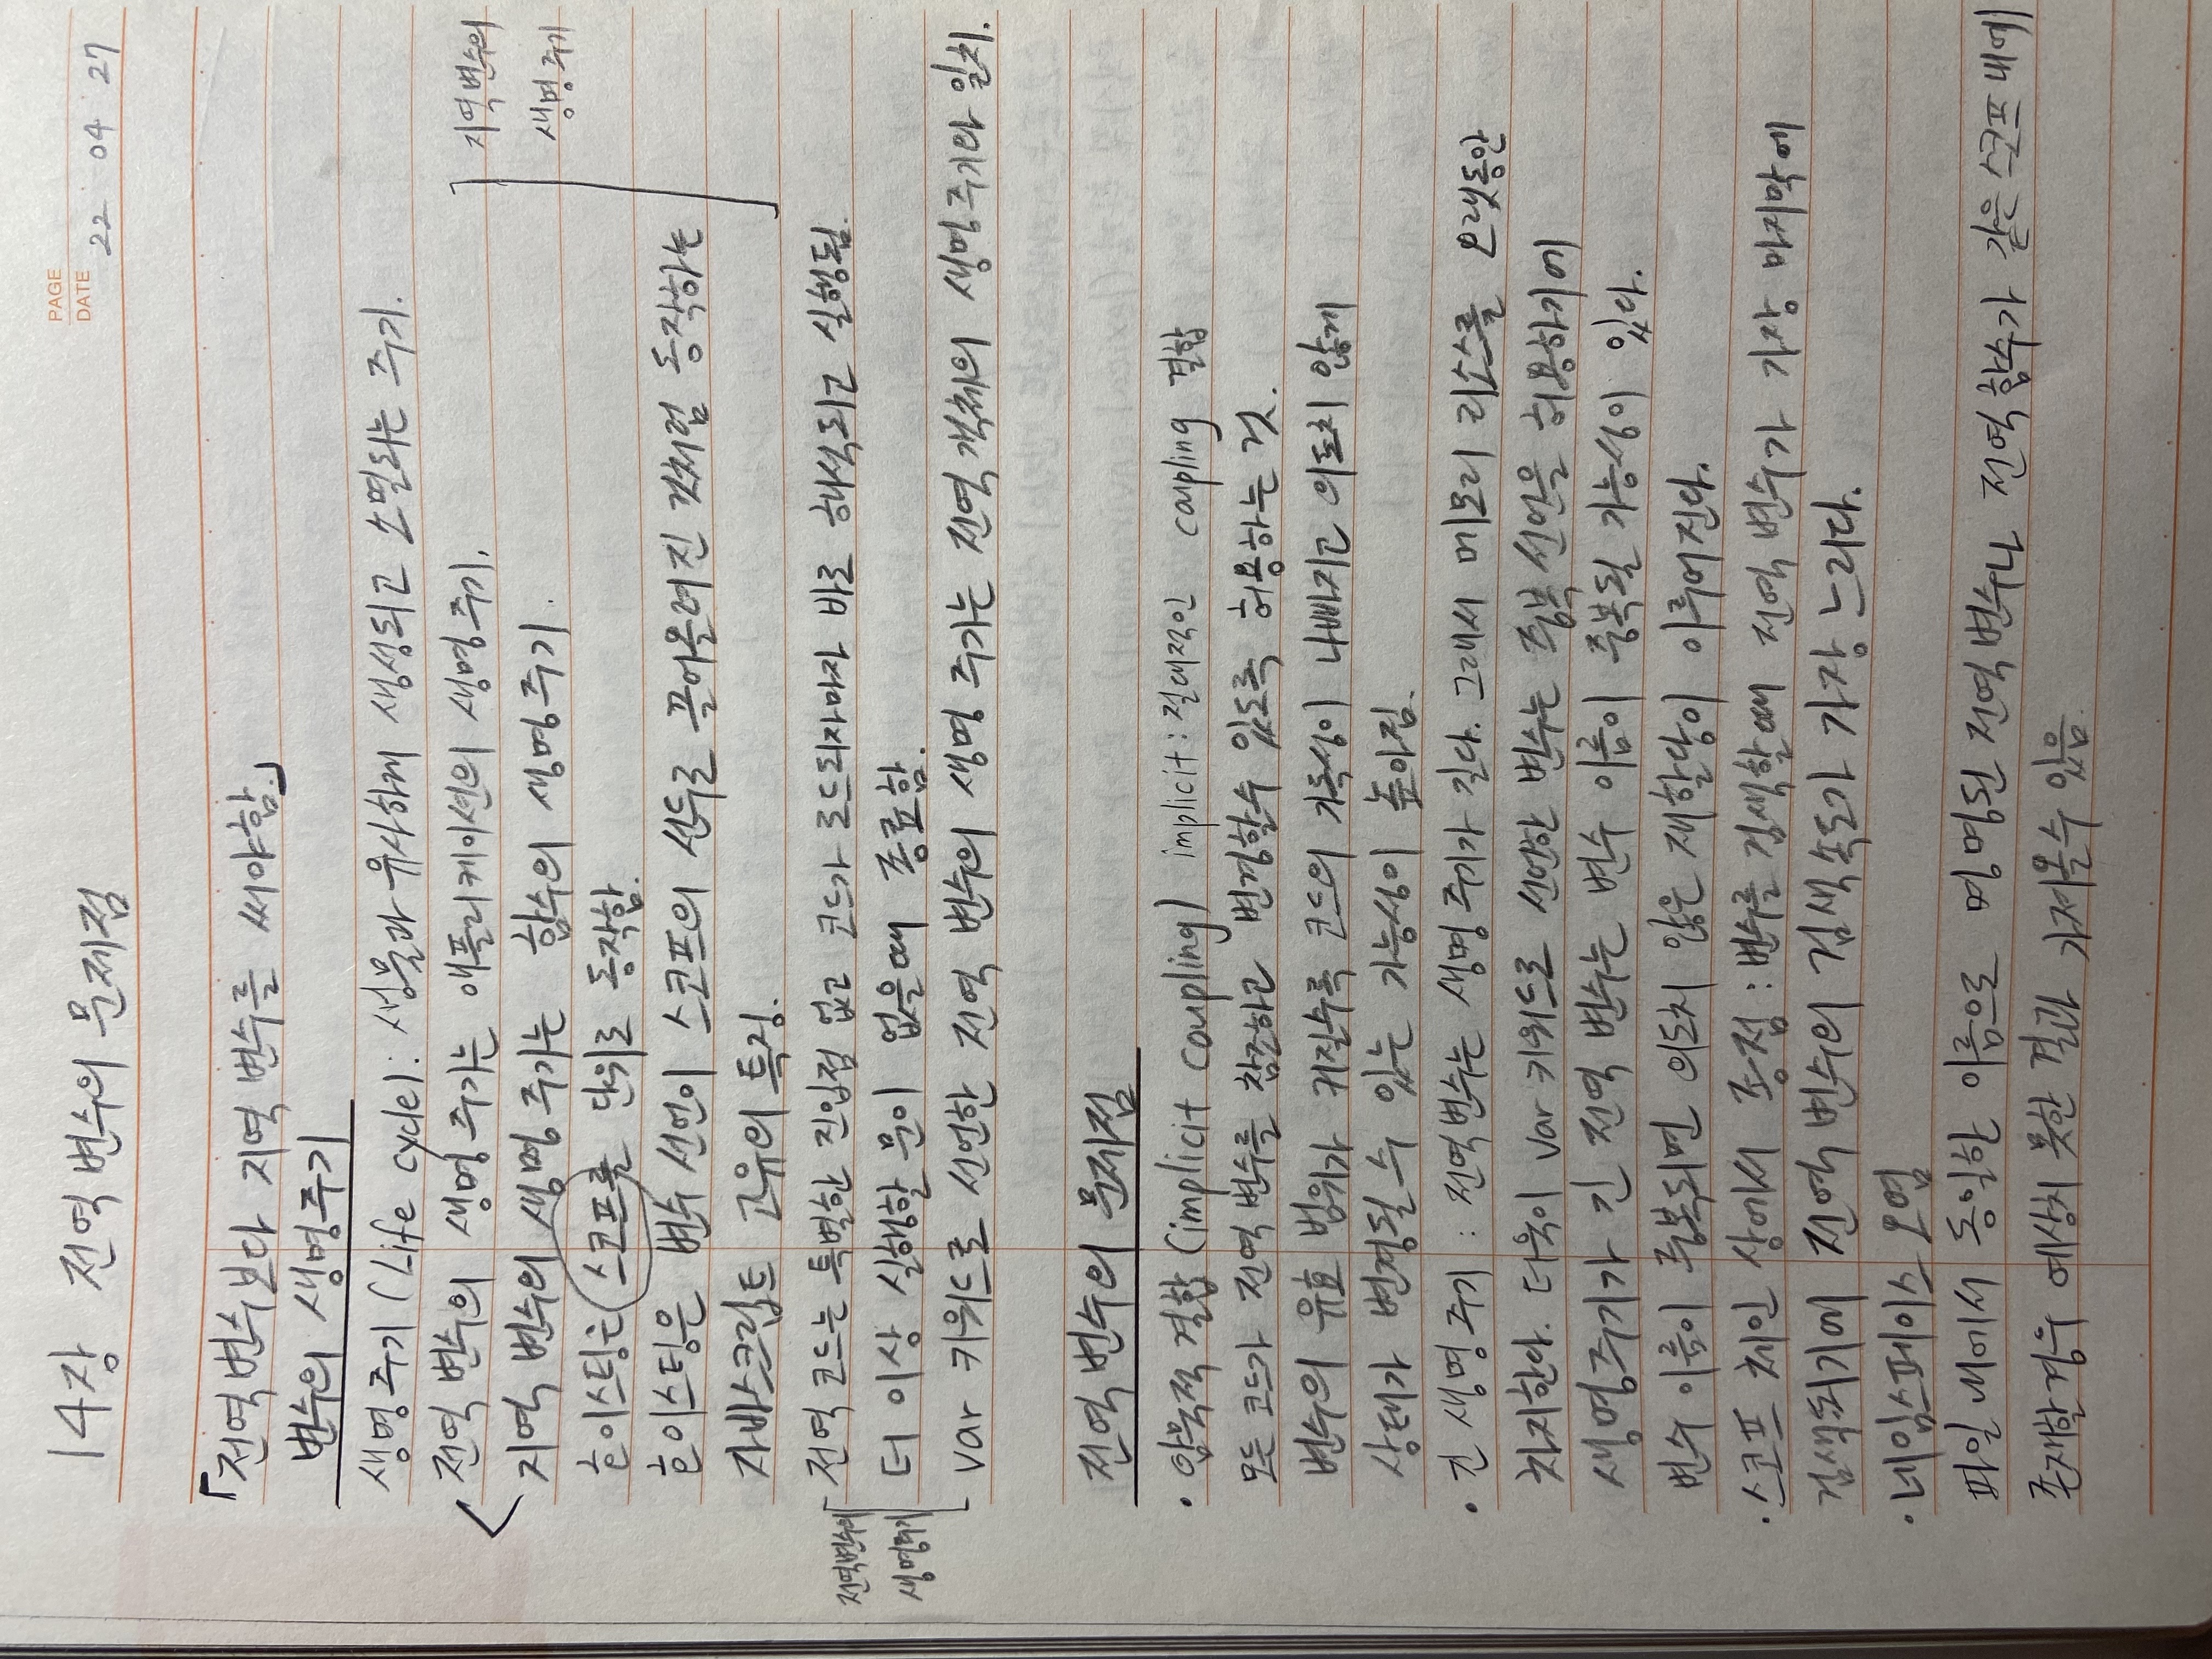 PAGE
DATE 22 04 27
14장 전역 변수의 문제점
「전역 변수보다 지역 변수를 써야함.」
변수의 생명주기
생명주기 (Life cycle): 생물과 유사하게 생성되고 소멸되는 주기.
전역 변수의 생명주기는 애플리케이션의 생명주기.
지역 변수의 생명주기는 함수의 생명주기.
호이스팅은 스코프를 단위로 동작함.
호이스팅은 변수 선언이 스코프의 선두로 끌어올려진 것처럼 동작하는
자바스크립트 고유의 특징.
지역변수의
생명주기
전역 코드는 특별한 진입점 없고 코드가 로드되자마자 바로 해석되고 실행됨.
더 이상 실행할 문이 없을때 종료함.
var 키워드로 선언한 전역 변수의 생명 주기는 전역 객체의 생명주기와 일치.
전역변수의
생명주기
전역 변수의 문제점
· 암묵적 결합 (implicit coupling) implicit: 절대적인 coupling 결합
모든 코드가 전역 변수를 참조하고 변경할수 있도록 허용하는 것.
변수의 유효 범위가 커질수록 코드의 가독성이 나빠지고 의도치 않게
상태가 변경될 수 있는 가능성이 높아짐.
· 긴 생명주기 : 전역변수는 생명 주기가 길다. 그래서 메모리 리소스를 오랫동안
차지한다. 더욱이 var 키워드로 선언한 변수는 중복 선언을 허용하기에
생명주기가 긴 전역 변수는 변수 이름이 중복될 가능성이 있다.
변수 이름이 중복되면 의도치 않은 재할당이 이루어진다.
· 스코프 체인 상에서 종점 : 변수를 검색할때 전역 변수가 가장 마지막에
검색되기에 전역 변수의 검색속도가 가장 느리다.
· 네임스페이스 오염
파일 내에서 동일한 이름으로 명명된 전역변수나 전역함수가 같은 스코프 내에
존재할경우 예상치 못한 결과 가져올수 있음.